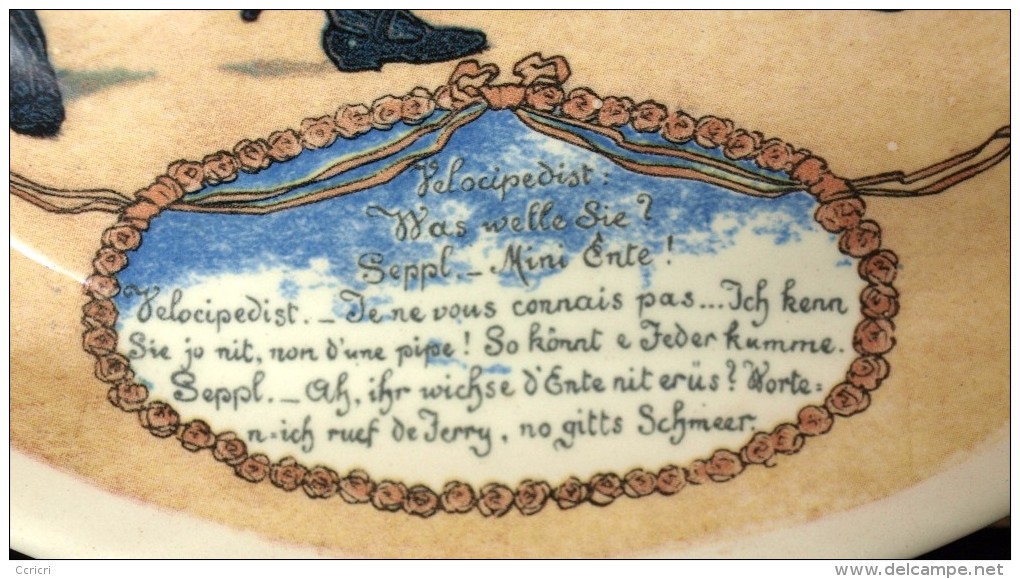 Velocipedist:
Was welle Sie?
Seppl._ Mini Ente!
Velocipedist._ Je ne vous connais pas... Ich kenn
Sie jo nit, non d'une pipe! So könnt e Jeder kumme.
Seppl._ Ah, ihr wichse d'Ente nit erüs? Worte=
n=ich ruef de Jerry, no gitts Schmeer.
Ccricri
delcampe.net